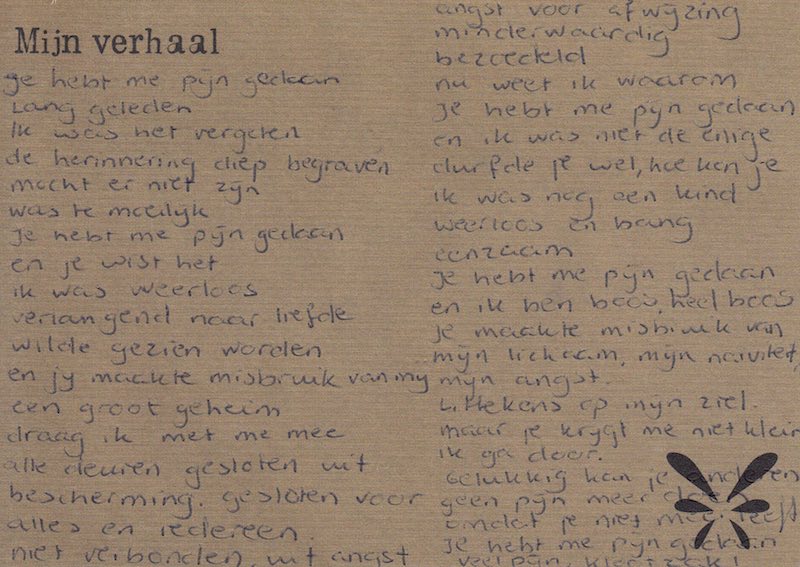 Mijn verhaal
je hebt me pijn gedaan
Lang geleden
ik was het vergeten
de herinnering diep begraven
mocht er niet zijn
was te moeilijk
Je hebt me pijn gedaan
en je wist het
ik was weerloos
verlangend naar liefde
wilde gezien worden
en jij maakte misbruik van mij
een groot geheim
draag ik met me mee
alle deuren gesloten uit
bescherming. gesloten voor
alles en iedereen.
niet verbonden, uit angst
angst voor afwijzing
minderwaardig
bezoedeld
nu weet ik waarom
Je hebt me pijn gedaan
en ik was niet de enige
durfde je wel, hoe kon je
ik was nog een kind
weerloos en bang
eenzaam
Je hebt me pijn gedaan
en ik ben boos, heel boos
Je maakte misbruik van
mijn lichaam, mijn naïviteit,
mijn angst.
Littekens op mijn ziel.
maar je krijgt me niet klein
ik ga door.
Gelukkig kan je anderen
geen pijn meer doen
omdat je niet meer leeft
Je hebt me pijn gedaan
veel pijn, klootzak!